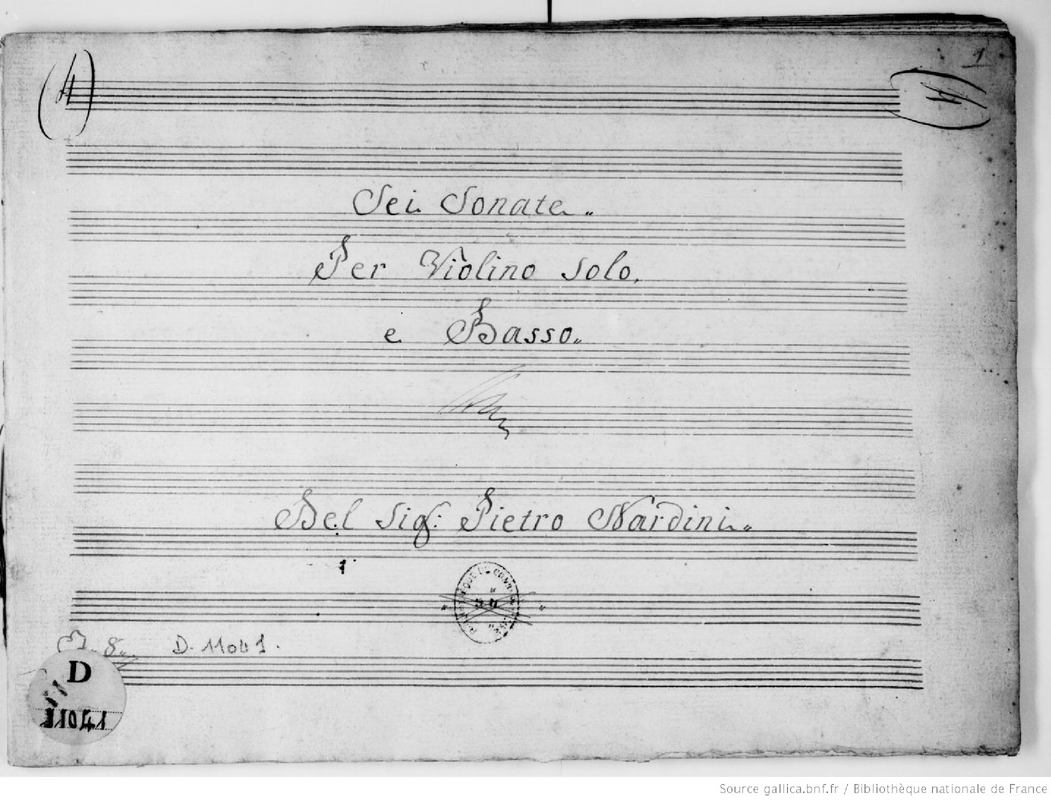 (4)
1
(4)
Sei Sonate
Per Violino Solo,
e Basso.
Del Sigʳ: Pietro Nardini
D. 11041.
D
11041
Source gallica.bnf.fr / Bibliothèque nationale de France